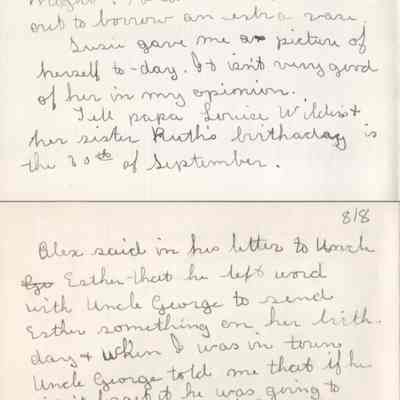 out to borrow an extra vase
Susie gave me a picture of
herself to-day. It isn't very good
of her in my opinion.
Tell papa Louise Wilders &
her sister Ruth's birthaday is
the 30th of September.
818
Alex said in his letter to Uncle
Esther that he left word
with Uncle George to send
Esther something on her birth-
day & when I was in town
Uncle George told me that if he
he was going to